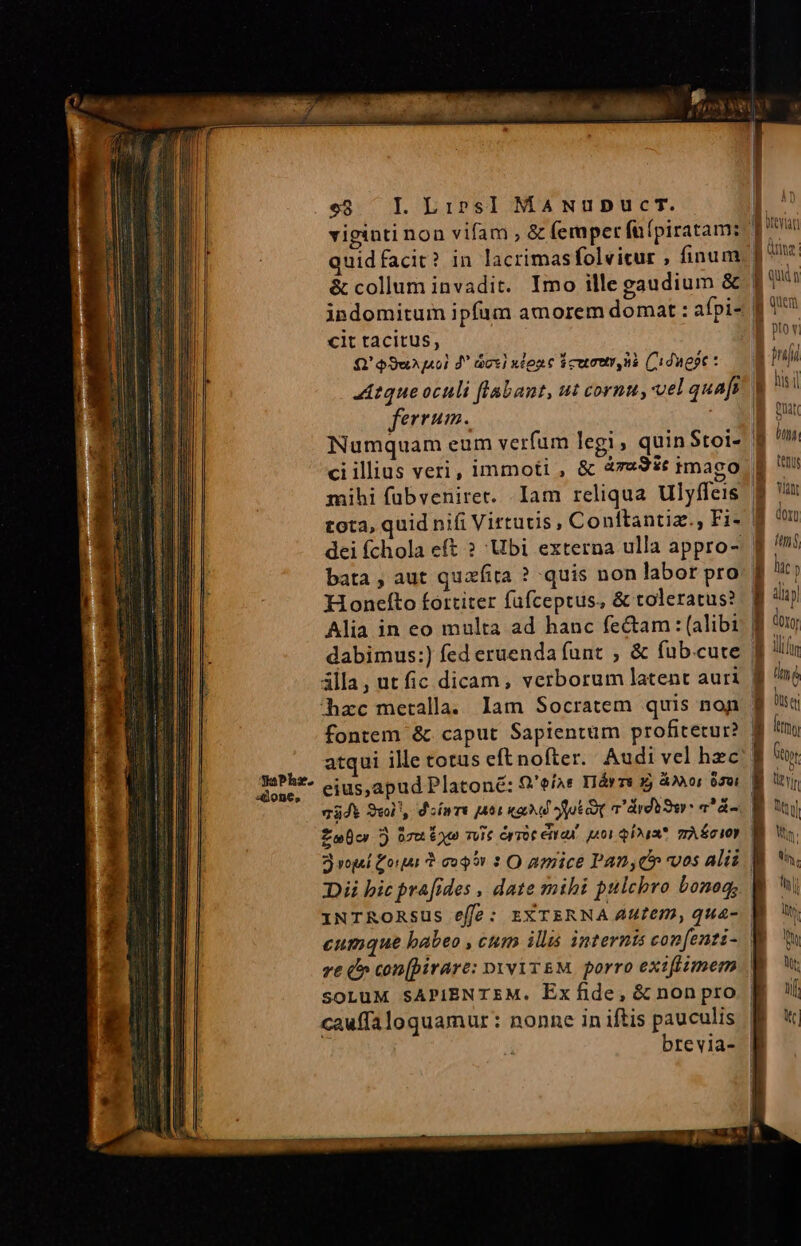 98 I. LIPSI MANUDUCT.
viginti non visam, & semper suspiratam:
quid facit? in lacrimas solvitur, sinum
& collum invadit. Imo ille gaudium &
indomitum ipsum amorem domat: aspi-
cit tacitus,
Ὀφθαλμοὶ δ' ὡσεὶ κέρας ἕστασαν, ἠὲ σίδηρος:
Atque oculi stabant, ut cornu, vel quasi
ferrum.
Numquam eum versum legi, quin Stoi-
ci illius veri, immoti, & ἀπαθοῦς imago
mihi subveniret. Iam reliqua Ulysseis
tota, quid nisi Virtutis, Constantiæ, Fi-
dei schola est? Ubi externa ulla appro-
bata, aut quæsita? quis non labor pro
Honesto fortiter susceptus, & toleratus?
Alia in eo multa ad hanc sectam: (alibi
dabimus:) sed eruenda sunt, & sub cute
illa, ut sic dicam, verborum latent auri
hæc metalla. Iam Socratem quis non
fontem & caput Sapientum profitetur?
atqui ille totus est noster. Audi vel hæc
In Phæ-
done,
eius, apud Platonē: Ὦ φίλε Πάν τε καὶ ἄλλοι ὅσοι
τῇδε θεοὶ, δοίητέ μοι καλῷ γενέσθαι τ' ἄνδοθεν· τ' ἔ-
ξωθεν δὲ ὅσα ἔχω τοῖς ἐντὸς εἶναί μοι φίλια· πλούσιον
δὲ νομίζοιμι τὸν σοφόν: O amice Pan, & vos alii
Dii hic præsides, date mihi pulchro bonoq;
INTRORSUS esse: EXTERNA autem, quæ-
cumque habeo, cum illis internis consenti-
re & conspirare: DIVITEM porro existimem
SOLUM SAPIENTEM. Ex fide, & non pro
caussa loquamur: nonne in istis pauculis
brevia-